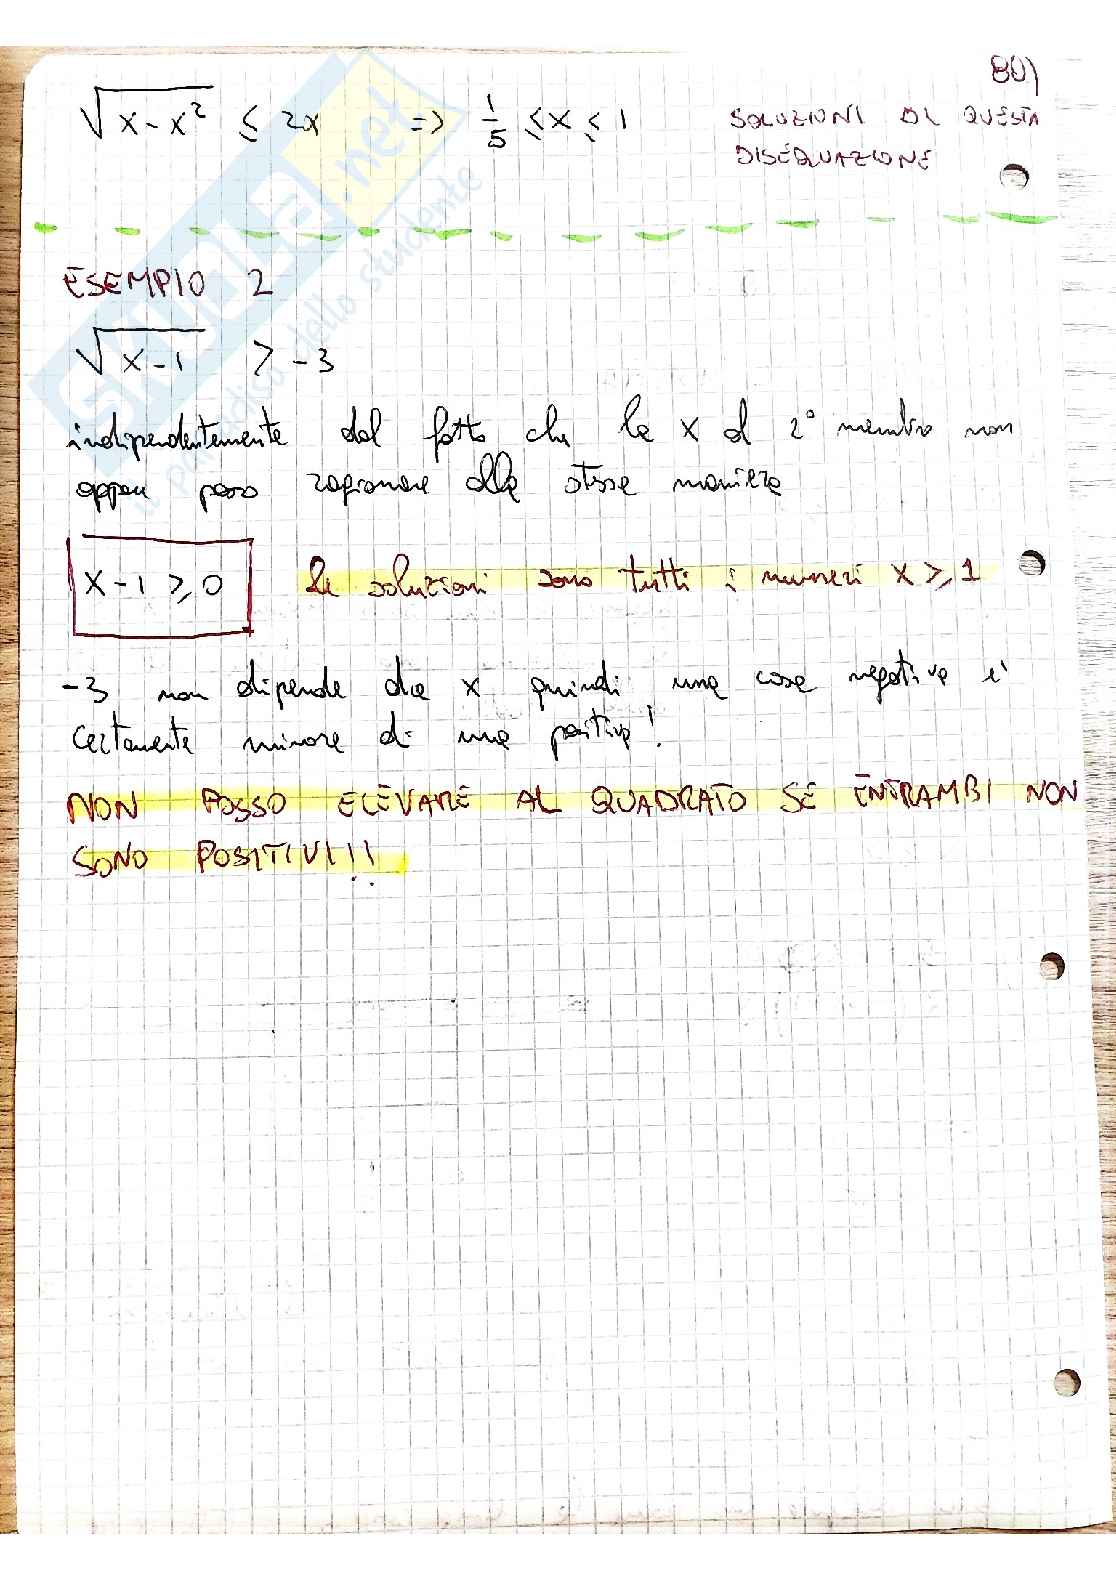 80)
√x-x² ≤ 2x => 1/5 ≤ x ≤ 1 SOLUZIONI DI QUESTA
DISEQUAZIONE
ESEMPIO 2
√x-1 > -3
indipendentemente dal fatto che la x al 2° membro non
appare posso ragionare alla stessa maniera
x-1 ≥ 0 le soluzioni sono tutti i numeri x ≥ 1
-3 non dipende da x quindi una cosa negativa e'
certamente minore di una positiva!
NON POSSO ELEVARE AL QUADRATO SE ENTRAMBI NON
SONO POSITIVI!!
skuola.net
il paradiso dello studente